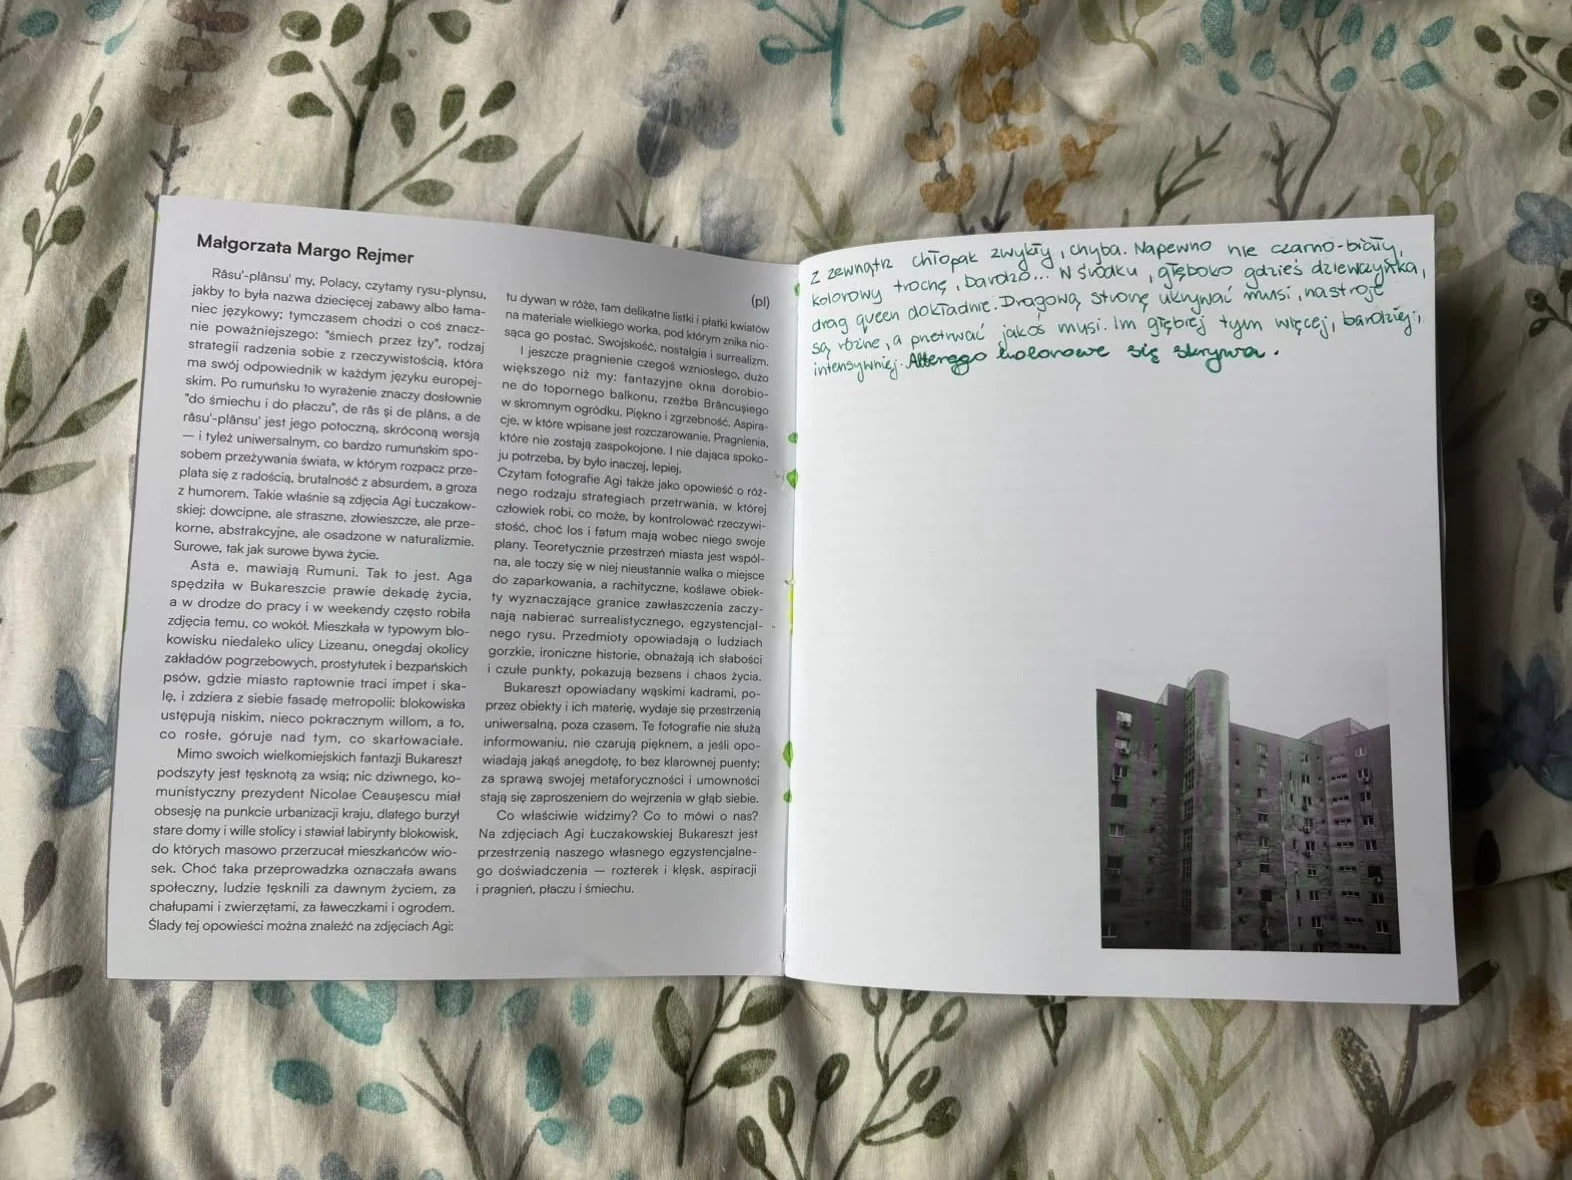 Małgorzata Margo Rejmer
Râsu'-plânsu' my, Polacy, czytamy rysu-plynsu,
jakby to była nazwa dziecięcej zabawy albo łama-
niec językowy; tymczasem chodzi o coś znacz-
nie poważniejszego: "śmiech przez łzy", rodzaj
strategii radzenia sobie z rzeczywistością, która
ma swój odpowiednik w każdym języku europej-
skim. Po rumuńsku to wyrażenie znaczy dosłownie
"do śmiechu i do płaczu", de râs și de plâns, a de
râsu'-plânsu' jest jego potoczną, skróconą wersją
— i tyleż uniwersalnym, co bardzo rumuńskim spo-
sobem przeżywania świata, w którym rozpacz prze-
plata się z radością, brutalność z absurdem, a groza
z humorem. Takie właśnie są zdjęcia Agi Łuczakow-
skiej: dowcipne, ale straszne, złowieszcze, ale prze-
korne, abstrakcyjne, ale osadzone w naturalizmie.
Surowe, tak jak surowe bywa życie.
Asta e, mawiają Rumuni. Tak to jest. Aga
spędziła w Bukareszcie prawie dekadę życia,
a w drodze do pracy i w weekendy często robiła
zdjęcia temu, co wokół. Mieszkała w typowym blo-
kowisku niedaleko ulicy Lizeanu, onegdaj okolicy
zakładów pogrzebowych, prostytutek i bezpańskich
psów, gdzie miasto raptownie traci impet i ska-
lę, i zdziera z siebie fasadę metropolii: blokowiska
ustępują niskim, nieco pokracznym willom, a to,
co rosłe, góruje nad tym, co skarłowaciałe.
Mimo swoich wielkomiejskich fantazji Bukareszt
podszyty jest tęsknotą za wsią; nic dziwnego, ko-
munistyczny prezydent Nicolae Ceaușescu miał
obsesję na punkcie urbanizacji kraju, dlatego burzył
stare domy i wille stolicy i stawiał labirynty blokowisk,
do których masowo przerzucał mieszkańców wio-
sek. Choć taka przeprowadzka oznaczała awans
społeczny, ludzie tęsknili za dawnym życiem, za
chałupami i zwierzętami, za ławeczkami i ogrodem.
Ślady tej opowieści można znaleźć na zdjęciach Agi:
(pl)
tu dywan w róże, tam delikatne listki i płatki kwiatów
na materiale wielkiego worka, pod którym znika nio-
sąca go postać. Swojskość, nostalgia i surrealizm.
I jeszcze pragnienie czegoś wzniosłego, dużo
większego niż my: fantazyjne okna dorobio-
ne do topornego balkonu, rzeźba Brâncușiego
w skromnym ogródku. Piękno i zgrzebność. Aspira-
cje, w które wpisane jest rozczarowanie. Pragnienia,
które nie zostają zaspokojone. I nie dająca spoko-
ju potrzeba, by było inaczej, lepiej.
Czytam fotografie Agi także jako opowieść o róż-
nego rodzaju strategiach przetrwania, w której
człowiek robi, co może, by kontrolować rzeczywi-
stość, choć los i fatum mają wobec niego swoje
plany. Teoretycznie przestrzeń miasta jest wspól-
na, ale toczy się w niej nieustannie walka o miejsce
do zaparkowania, a rachityczne, koślawe obiek-
ty wyznaczające granice zawłaszczenia zaczy-
nają nabierać surrealistycznego, egzystencjal-
nego rysu. Przedmioty opowiadają o ludziach
gorzkie, ironiczne historie, obnażają ich słabości
i czułe punkty, pokazują bezsens i chaos życia.
Bukareszt opowiadany wąskimi kadrami, po-
przez obiekty i ich materię, wydaje się przestrzenią
uniwersalną, poza czasem. Te fotografie nie służą
informowaniu, nie czarują pięknem, a jeśli opo-
wiadają jakąś anegdotę, to bez klarownej puenty;
za sprawą swojej metaforyczności i umowności
stają się zaproszeniem do wejrzenia w głąb siebie.
Co właściwie widzimy? Co to mówi o nas?
Na zdjęciach Agi Łuczakowskiej Bukareszt jest
przestrzenią naszego własnego egzystencjalne-
go doświadczenia — rozterek i klęsk, aspiracji
i pragnień, płaczu i śmiechu.
Z zewnątrz chłopak zwykły, chyba. Napewno nie czarno-biały,
kolorowy trochę, bardzo... W środku, głęboko gdzieś dziewczynka,
drag queen dokładnie. Dragową stronę ukrywać musi, nastroje
są różne, a przetrwać jakoś musi. Im głębiej tym więcej, bardziej,
intensywniej. Alterego kolorowe się skrywa.